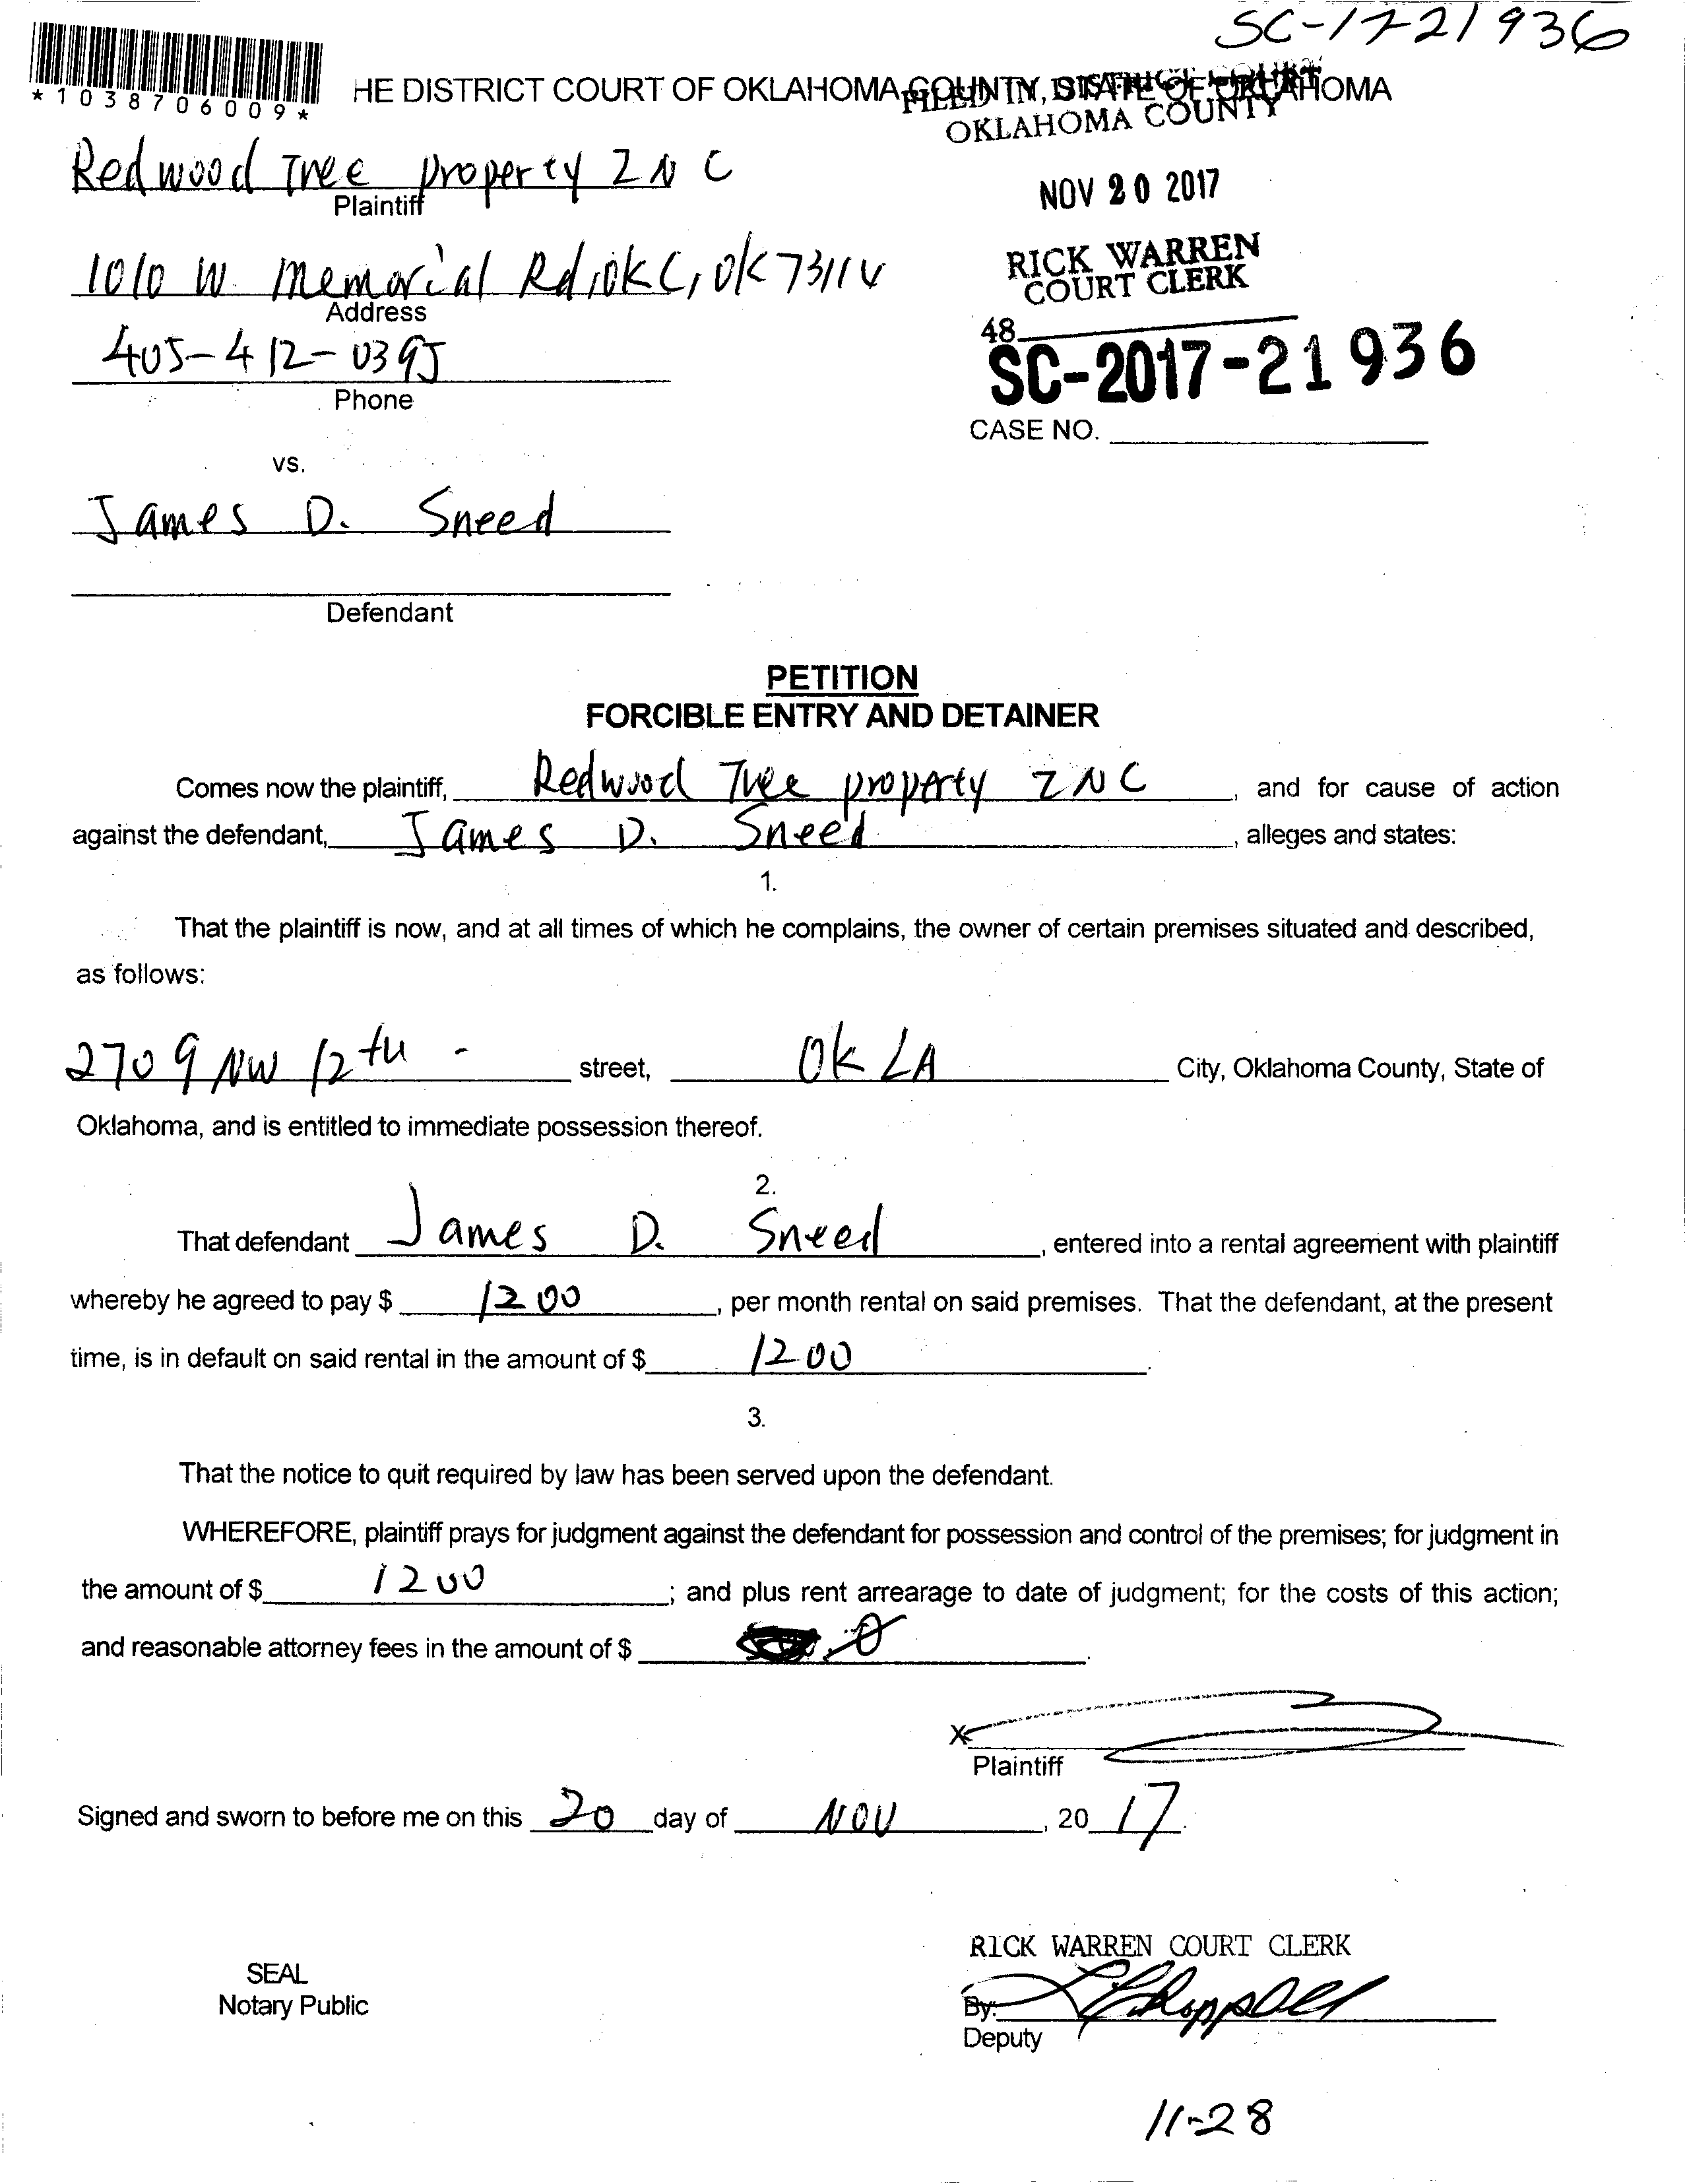 SC-17-21936
*1038706009*
HE DISTRICT COURT OF OKLAHOMA COUNTY, STATE OF OKLAHOMA
FILED IN DISTRICT COURT
OKLAHOMA COUNTY
Redwood Tree property INC
Plaintiff
NOV 20 2017
1010 W. Memorial Rd, OKC, OK 73114
Address
RICK WARREN
COURT CLERK
405-412-0395
Phone
48
SC-2017-21936
CASE NO.
vs.
James D. Sneed
Defendant
PETITION
FORCIBLE ENTRY AND DETAINER
Comes now the plaintiff, Redwood Tree property INC, and for cause of action
against the defendant, James D. Sneed, alleges and states:
1.
That the plaintiff is now, and at all times of which he complains, the owner of certain premises situated and described,
as follows:
2709 NW 12th - street, OKLA City, Oklahoma County, State of
Oklahoma, and is entitled to immediate possession thereof.
2.
That defendant James D. Sneed, entered into a rental agreement with plaintiff
whereby he agreed to pay $ 1200, per month rental on said premises. That the defendant, at the present
time, is in default on said rental in the amount of $ 1200.
3.
That the notice to quit required by law has been served upon the defendant.
WHEREFORE, plaintiff prays for judgment against the defendant for possession and control of the premises; for judgment in
the amount of $ 1200; and plus rent arrearage to date of judgment; for the costs of this action;
and reasonable attorney fees in the amount of $ 0.
X
Plaintiff
Signed and sworn to before me on this 20 day of NOV, 2017.
RICK WARREN COURT CLERK
SEAL
Notary Public
By:
Deputy
11-28